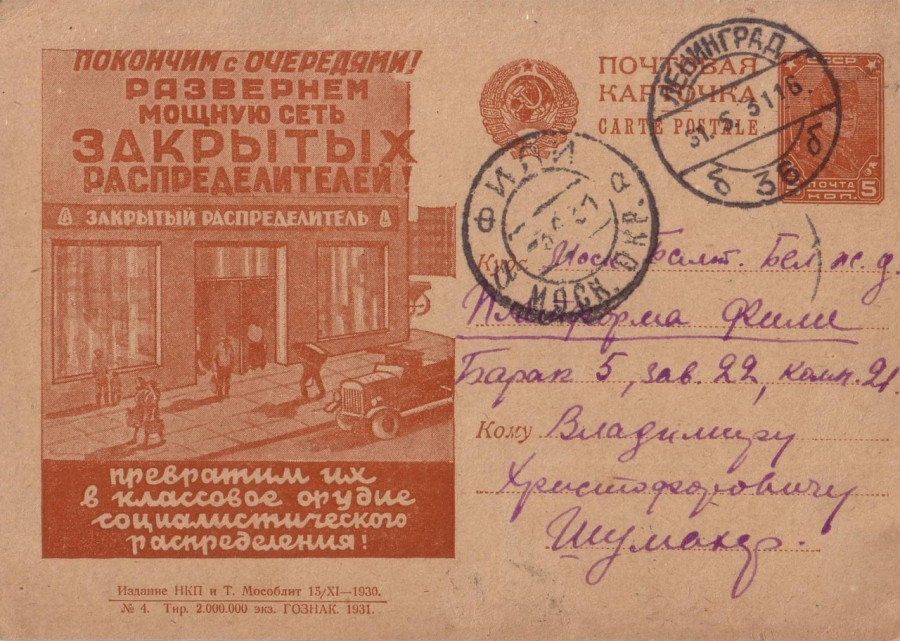 ПОКОНЧИМ с ОЧЕРЕДЯМИ!
РАЗВЕРНЕМ
МОЩНУЮ СЕТЬ
ЗАКРЫТЫХ
РАСПРЕДЕЛИТЕЛЕЙ!
ЗАКРЫТЫЙ РАСПРЕДЕЛИТЕЛЬ
превратим их
в классовое орудие
социалистического
распределения!
Издание НКП и Т. Мособлит 15/XI—1930.
№ 4. Тир. 2.000.000 экз. ГОЗНАК. 1931.
ПОЧТОВАЯ
КАРТОЧКА
CARTE POSTALE
СССР
ПОЧТА
5 КОП. 5
ЛЕНИНГРАД
31.5.31 16.
б 36 б
ФИЛИ
МОСК. ОКР.
Куда Моск. Балт. Бел. ж. д.
Платформа Фили
Барак 5, зав. 22, комн. 21
Кому Владимиру
Христофоровичу